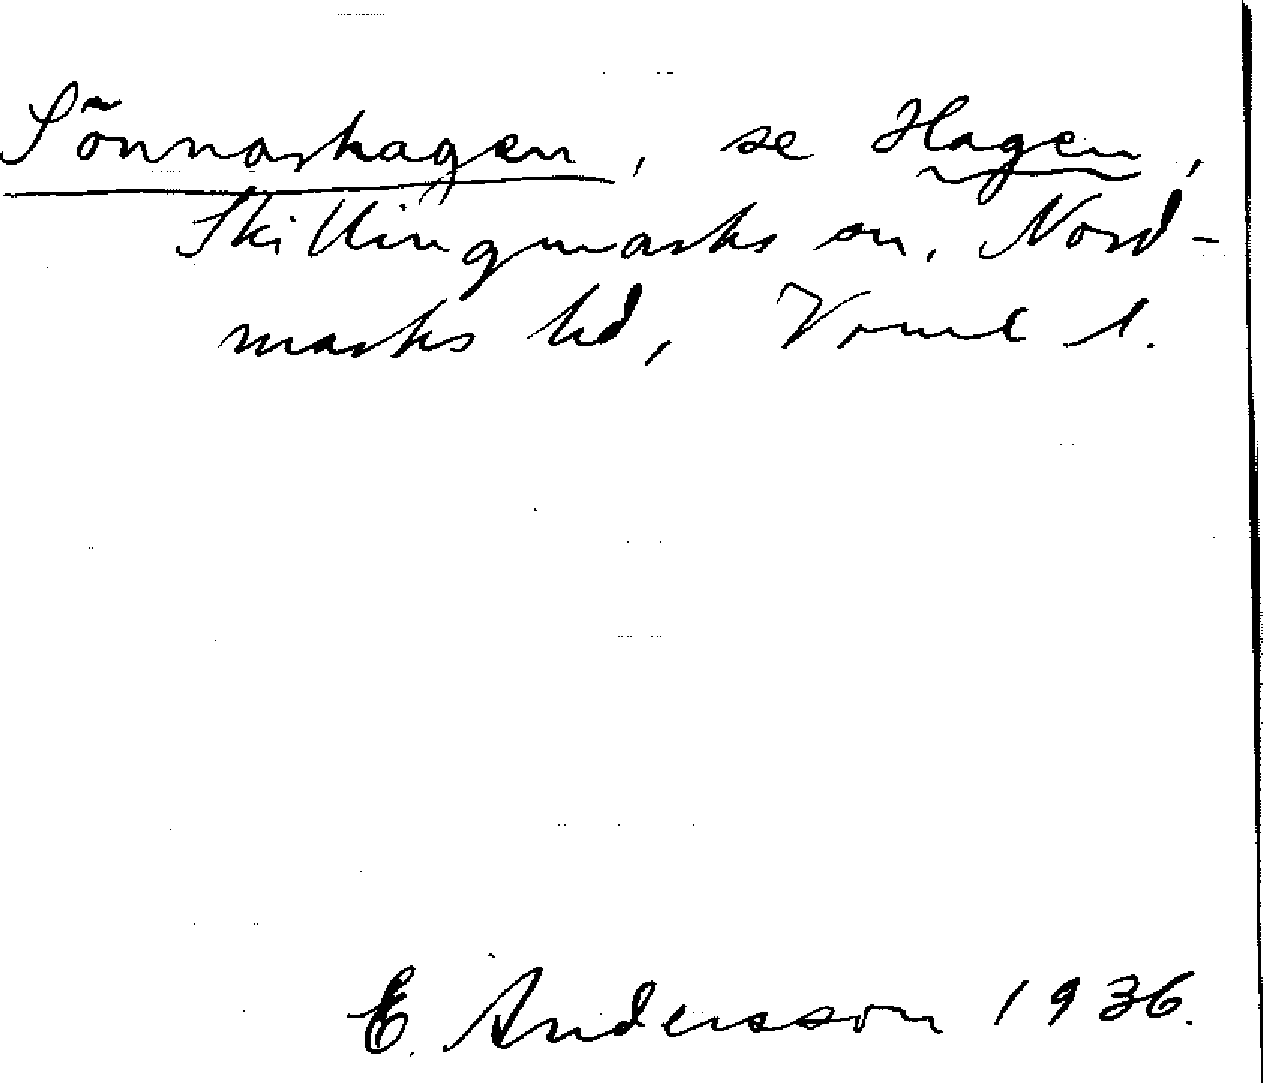 Sönnaskagen, se Hagen,
Skillingmarks sn, Nord-
marks hd, Vrml l.
E. Andersson 1936.